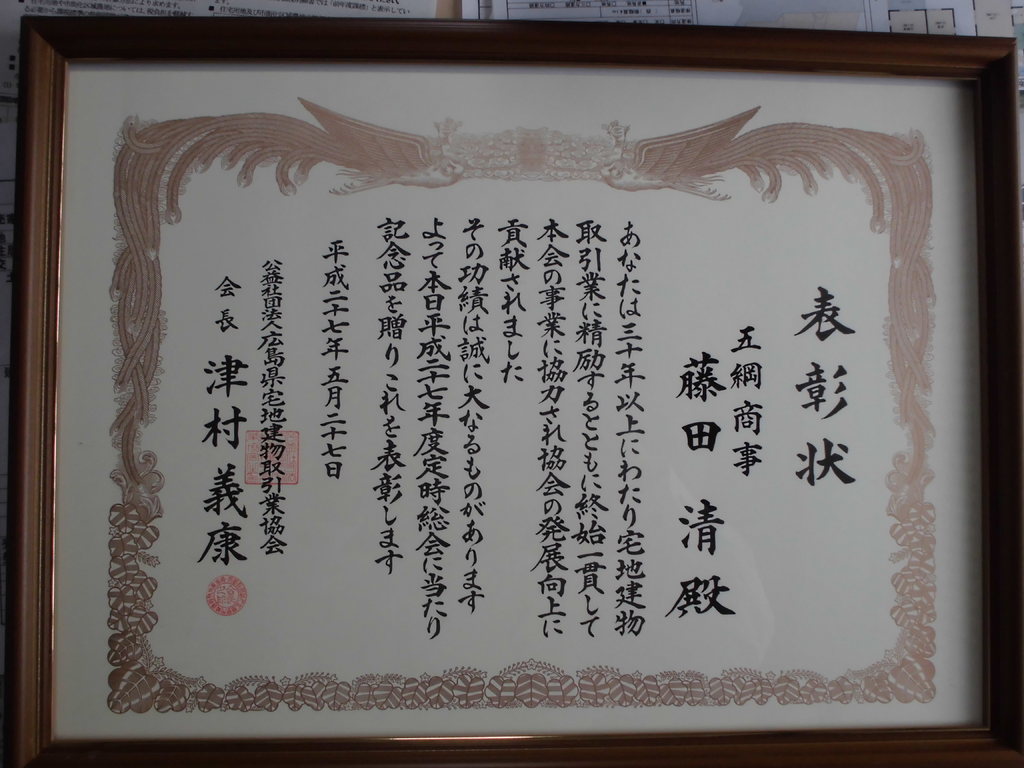 表彰状
五綱商事
藤田清殿
あなたは三十年以上にわたり宅地建物
取引業に精励するとともに終始一貫して
本会の事業に協力され協会の発展向上に
貢献されました
その功績は誠に大なるものがあります
よって本日平成二十七年度定時総会に当たり
記念品を贈りこれを表彰します
平成二十七年五月二十七日
公益社団法人広島県宅地建物取引業協会
会長 津村義康